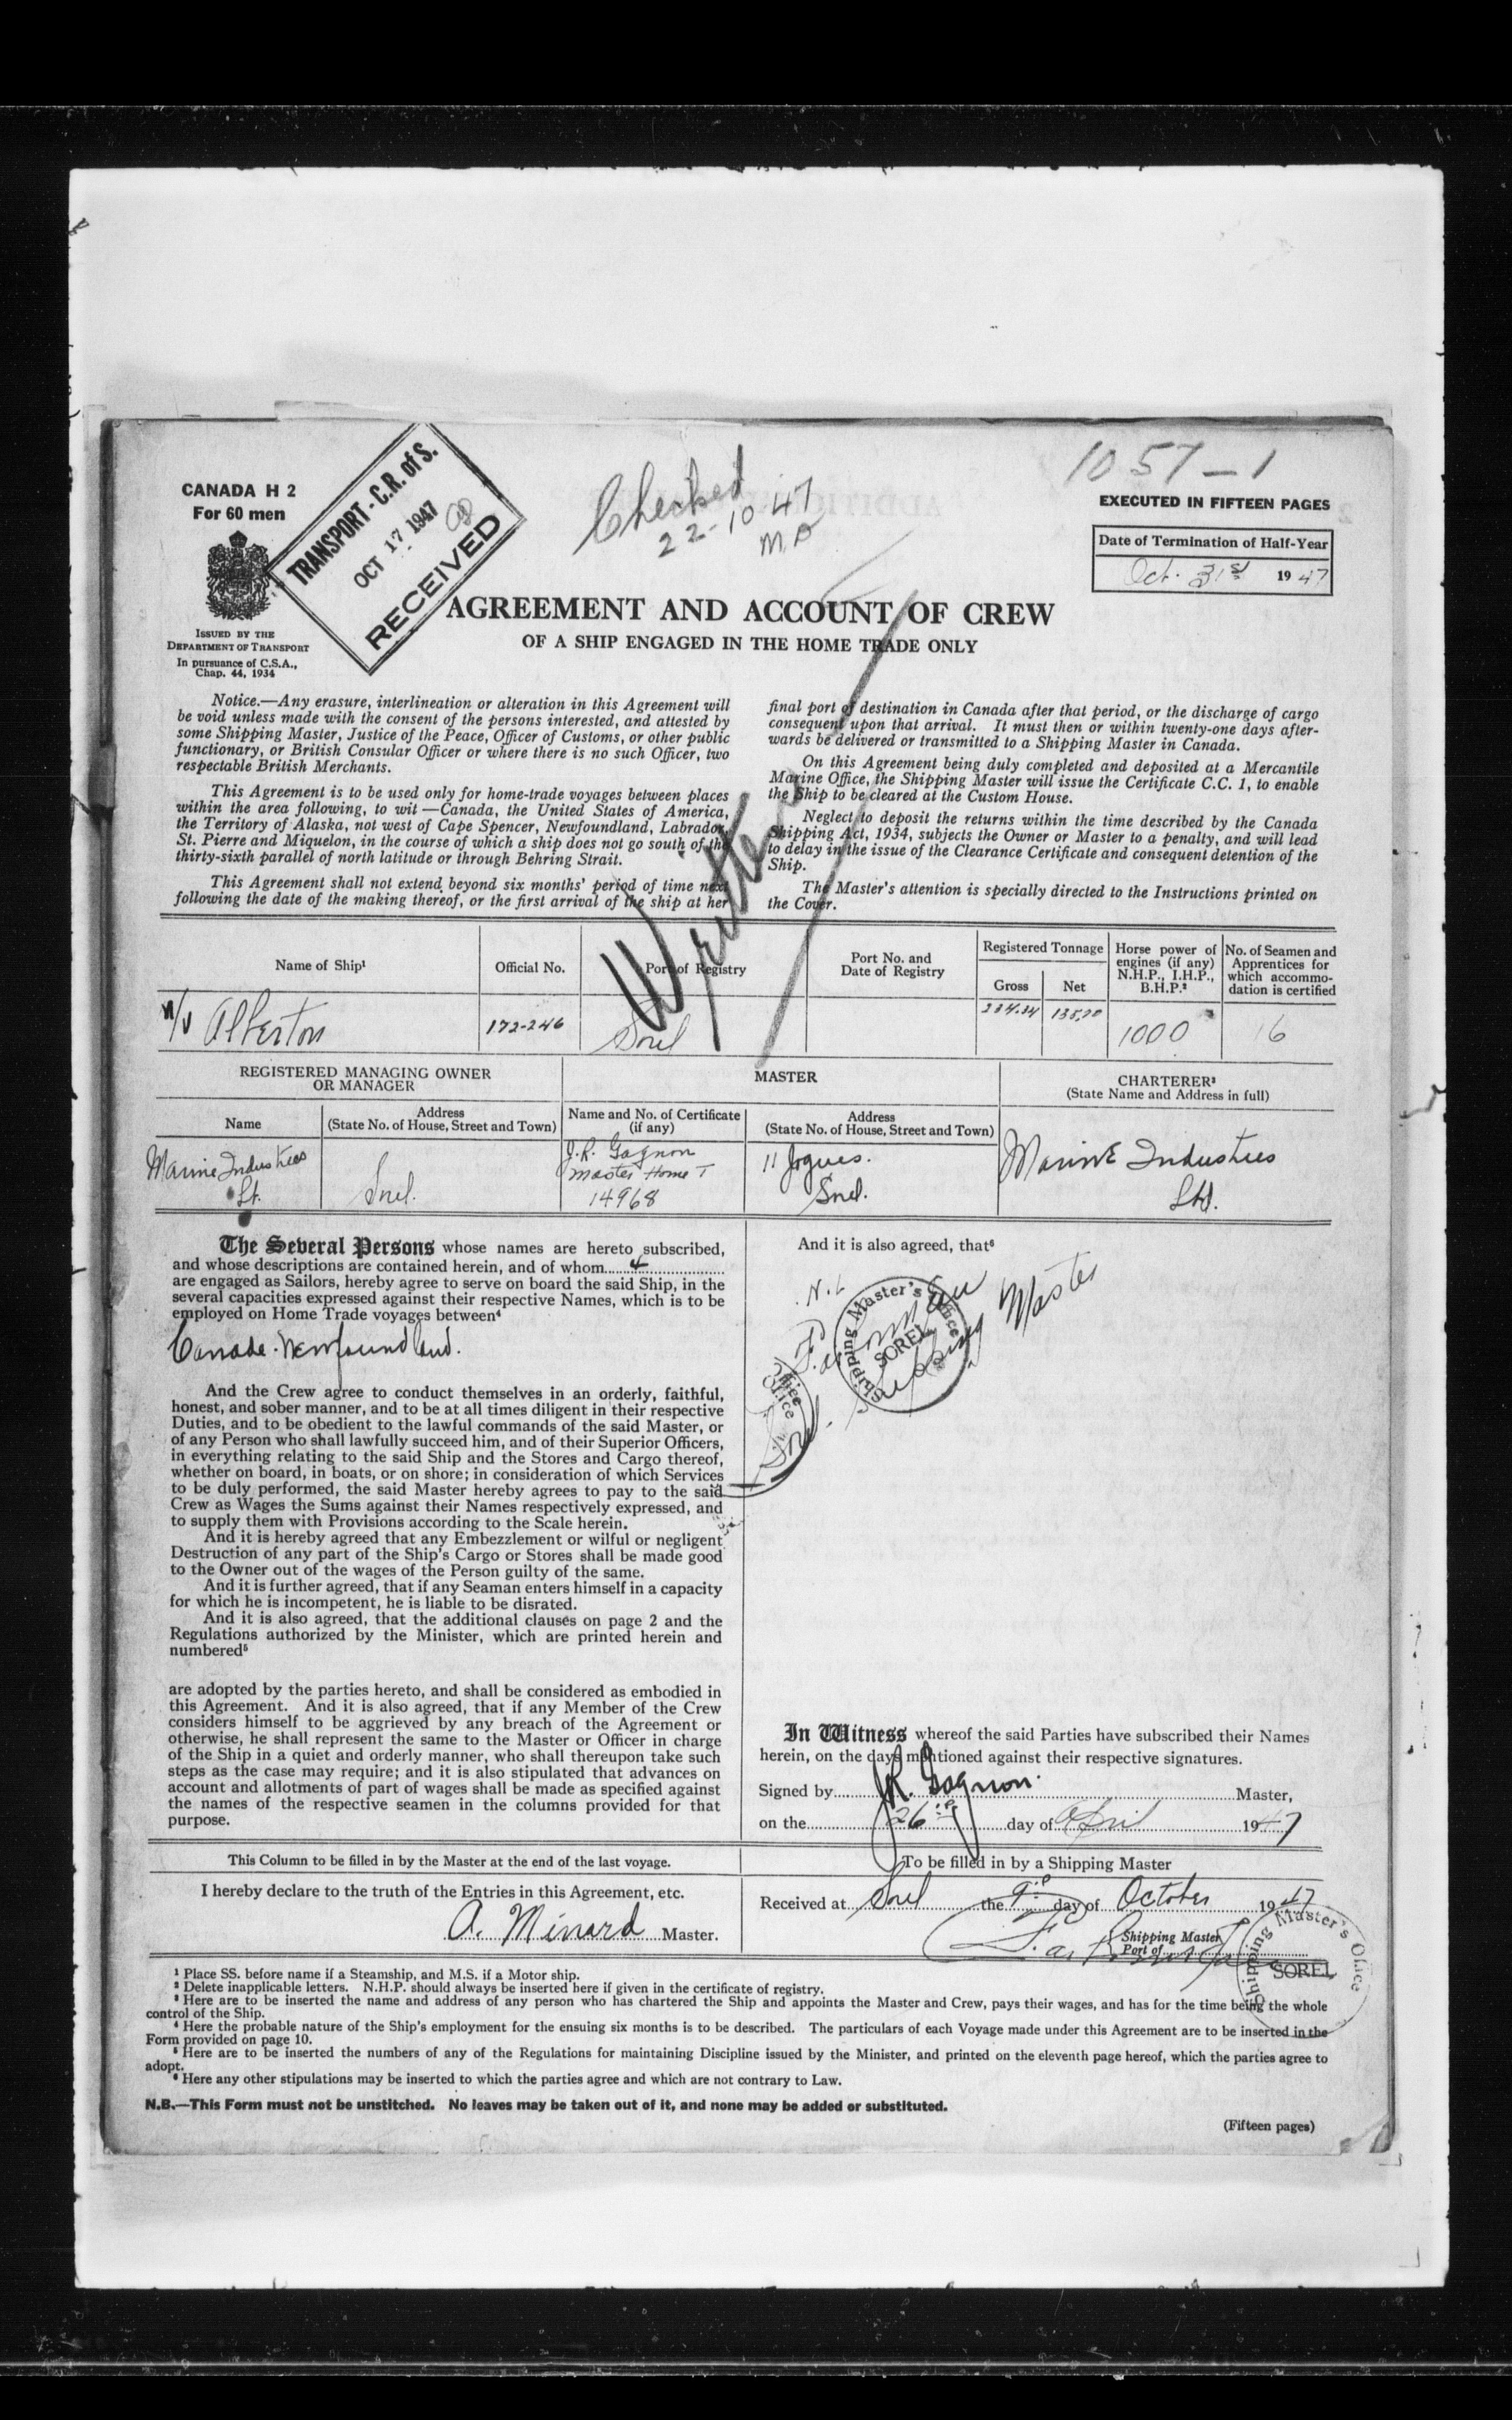 1057-1
CANADA H 2
For 60 men
TRANSPORT - C.R. of S.
OCT 17 1947
RECEIVED
Checked
22-10-47
EXECUTED IN FIFTEEN PAGES
Date of Termination of Half-Year
Oct. 31st 1947
ISSUED BY THE
DEPARTMENT OF TRANSPORT
In pursuance of C.S.A.,
Chap. 44, 1934
AGREEMENT AND ACCOUNT OF CREW
OF A SHIP ENGAGED IN THE HOME TRADE ONLY
Notice.—Any erasure, interlineation or alteration in this Agreement will
be void unless made with the consent of the persons interested, and attested by
some Shipping Master, Justice of the Peace, Officer of Customs, or other public
functionary, or British Consular Officer or where there is no such Officer, two
respectable British Merchants.
This Agreement is to be used only for home-trade voyages between places
within the area following, to wit —Canada, the United States of America,
the Territory of Alaska, not west of Cape Spencer, Newfoundland, Labrador,
St. Pierre and Miquelon, in the course of which a ship does not go south of the
thirty-sixth parallel of north latitude or through Behring Strait.
This Agreement shall not extend beyond six months' period of time next
following the date of the making thereof, or the first arrival of the ship at her
final port of destination in Canada after that period, or the discharge of cargo
consequent upon that arrival. It must then or within twenty-one days after-
wards be delivered or transmitted to a Shipping Master in Canada.
On this Agreement being duly completed and deposited at a Mercantile
Marine Office, the Shipping Master will issue the Certificate C.C. 1, to enable
the Ship to be cleared at the Custom House.
Neglect to deposit the returns within the time described by the Canada
Shipping Act, 1934, subjects the Owner or Master to a penalty, and will lead
to delay in the issue of the Clearance Certificate and consequent detention of the
Ship.
The Master's attention is specially directed to the Instructions printed on
the Cover.
Name of Ship¹
Official No.
Port of Registry
Port No. and
Date of Registry
Registered Tonnage
Gross
Net
Horse power of
engines (if any)
N.H.P., I.H.P.,
B.H.P.²
No. of Seamen and
Apprentices for
which accommo-
dation is certified
Alberton
172-246
Sorel
1000
16
REGISTERED MANAGING OWNER
OR MANAGER
MASTER
CHARTERER³
(State Name and Address in full)
Name
Address
(State No. of House, Street and Town)
Name and No. of Certificate
(if any)
Address
(State No. of House, Street and Town)
Marine Industries
Lt.
Sorel.
J.R. Gagnon
Master Home T
14968
11 Jogues.
Sorel.
Marine Industries
Ltd.
The Several Persons whose names are hereto subscribed,
and whose descriptions are contained herein, and of whom 4
are engaged as Sailors, hereby agree to serve on board the said Ship, in the
several capacities expressed against their respective Names, which is to be
employed on Home Trade voyages between⁴
Canada. Newfoundland.
And the Crew agree to conduct themselves in an orderly, faithful,
honest, and sober manner, and to be at all times diligent in their respective
Duties, and to be obedient to the lawful commands of the said Master, or
of any Person who shall lawfully succeed him, and of their Superior Officers,
in everything relating to the said Ship and the Stores and Cargo thereof,
whether on board, in boats, or on shore; in consideration of which Services
to be duly performed, the said Master hereby agrees to pay to the said
Crew as Wages the Sums against their Names respectively expressed, and
to supply them with Provisions according to the Scale herein.
And it is hereby agreed that any Embezzlement or wilful or negligent
Destruction of any part of the Ship's Cargo or Stores shall be made good
to the Owner out of the wages of the Person guilty of the same.
And it is further agreed, that if any Seaman enters himself in a capacity
for which he is incompetent, he is liable to be disrated.
And it is also agreed, that the additional clauses on page 2 and the
Regulations authorized by the Minister, which are printed herein and
numbered⁵
are adopted by the parties hereto, and shall be considered as embodied in
this Agreement. And it is also agreed, that if any Member of the Crew
considers himself to be aggrieved by any breach of the Agreement or
otherwise, he shall represent the same to the Master or Officer in charge
of the Ship in a quiet and orderly manner, who shall thereupon take such
steps as the case may require; and it is also stipulated that advances on
account and allotments of part of wages shall be made as specified against
the names of the respective seamen in the columns provided for that
purpose.
And it is also agreed, that⁶
Shipping Master's Office
SOREL
Shipping Master
In Witness whereof the said Parties have subscribed their Names
herein, on the days mentioned against their respective signatures.
Signed by J.R. Gagnon. Master,
on the 26th day of April 1947
This Column to be filled in by the Master at the end of the last voyage.
I hereby declare to the truth of the Entries in this Agreement, etc.
A. Minard Master.
To be filled in by a Shipping Master
Received at Sorel the 9th day of October 1947
Shipping Master
Port of
Shipping Master's Office
SOREL
¹ Place SS. before name if a Steamship, and M.S. if a Motor ship.
² Delete inapplicable letters. N.H.P. should always be inserted here if given in the certificate of registry.
³ Here are to be inserted the name and address of any person who has chartered the Ship and appoints the Master and Crew, pays their wages, and has for the time being the whole
control of the Ship.
⁴ Here the probable nature of the Ship's employment for the ensuing six months is to be described. The particulars of each Voyage made under this Agreement are to be inserted in the
Form provided on page 10.
⁵ Here are to be inserted the numbers of any of the Regulations for maintaining Discipline issued by the Minister, and printed on the eleventh page hereof, which the parties agree to
adopt.
⁶ Here any other stipulations may be inserted to which the parties agree and which are not contrary to Law.
N.B.—This Form must not be unstitched. No leaves may be taken out of it, and none may be added or substituted.
(Fifteen pages)